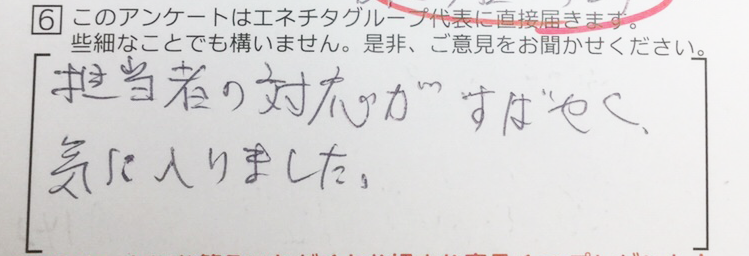 6 このアンケートはエネチタグループ代表に直接届きます。
些細なことでも構いません。是非、ご意見をお聞かせください。
担当者の対応がすばやく、
気に入りました。